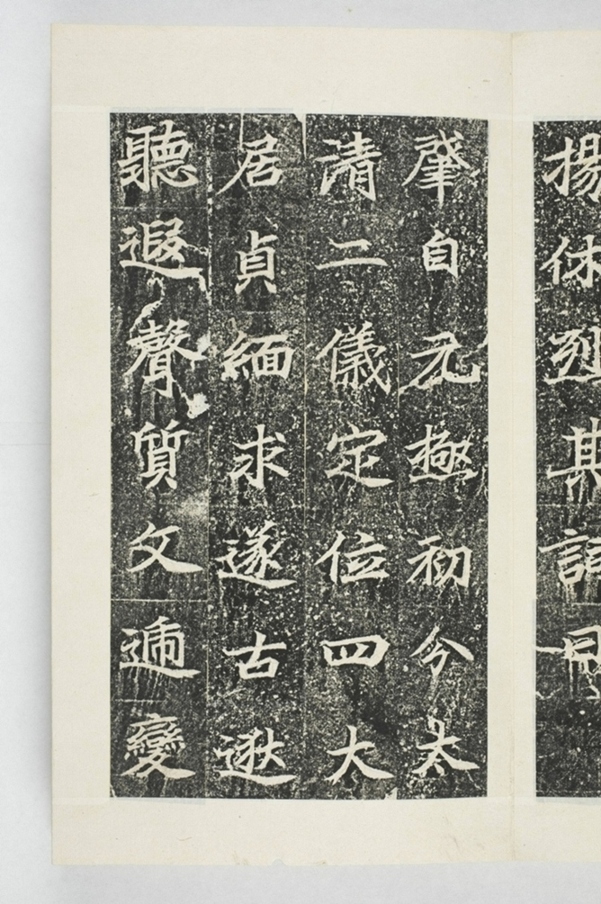 揚休烈其詞曰
肇自元極初分太
清二儀定位四大
居貞緬求遂古逖
聽遐聲質文遞變